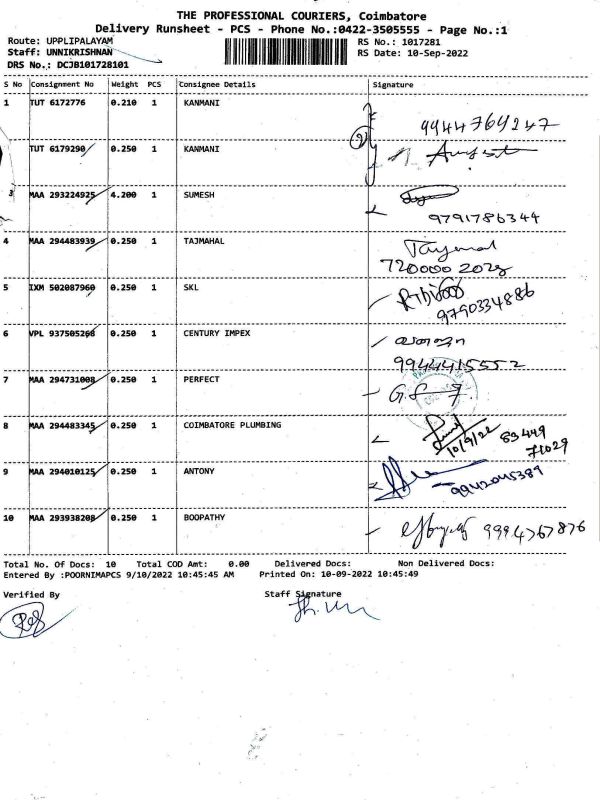 THE PROFESSIONAL COURIERS, Coimbatore
Delivery Runsheet - PCS - Phone No.:0422-3505555 - Page No.:1
Route: UPPLIPALAYAM
Staff: UNNIKRISHNAN
DRS No.: DCJB101728101
RS No.: 1017281
RS Date: 10-Sep-2022
S No Consignment No Weight PCS Consignee Details Signature
1 TUT 6172776 0.210 1 KANMANI 9944769247
TUT 6179290 0.250 1 KANMANI
3 MAA 293224925 4.200 1 SUMESH
9791786344
4 MAA 294483939 0.250 1 TAJMAHAL
720000 2028
5 IXM 502087960 0.250 1 SKL
9790334886
6 VPL 937505268 0.250 1 CENTURY IMPEX
9944415552
7 MAA 294731008 0.250 1 PERFECT
8 MAA 294483345 0.250 1 COIMBATORE PLUMBING
10/9/22 83449
71029
9 MAA 294010125 0.250 1 ANTONY
9942045389
10 MAA 293938208 0.250 1 BOOPATHY 9994767876
Total No. Of Docs: 10 Total COD Amt: 0.00 Delivered Docs: Non Delivered Docs:
Entered By :POORNIMAPCS 9/10/2022 10:45:45 AM Printed On: 10-09-2022 10:45:49
Verified By Staff Signature